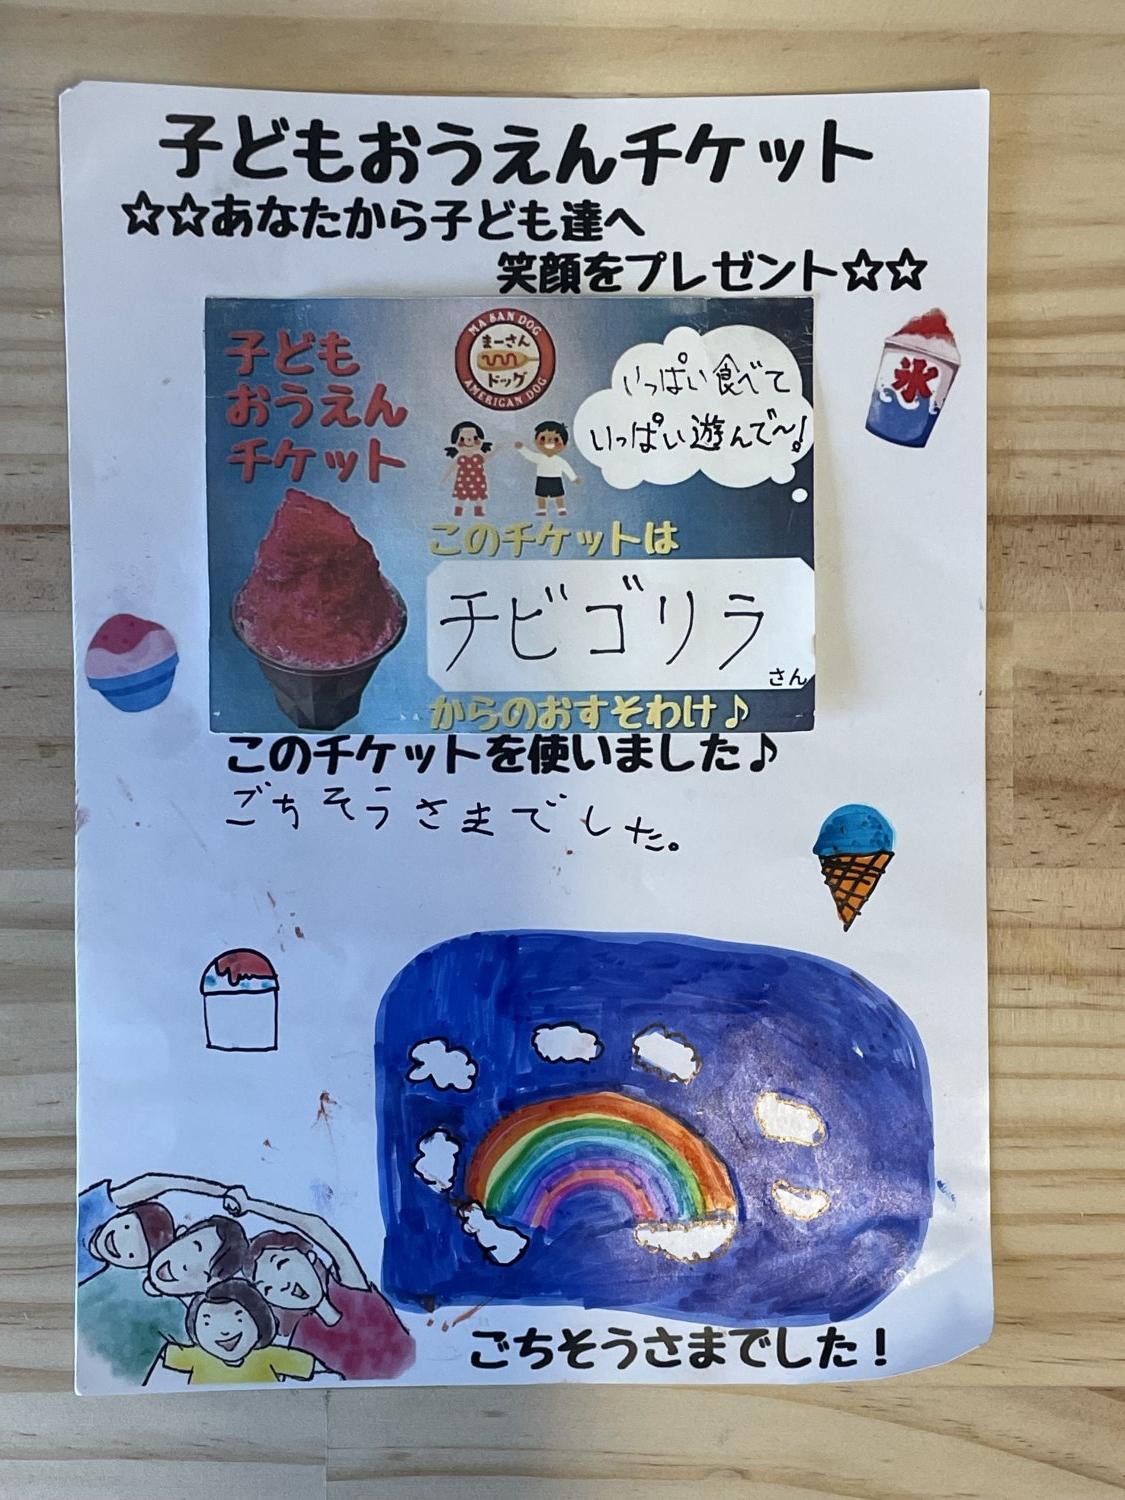 子どもおうえんチケット
☆☆あなたから子ども達へ
笑顔をプレゼント☆☆
子ども
おうえん
チケット
MA SAN DOG
まーさん
ドッグ
AMERICAN DOG
いっぱい食べて
いっぱい遊んで〜!
氷
このチケットは
チビゴリラ
さん
からのおすそわけ♪
このチケットを使いました♪
ごちそうさまでした。
ごちそうさまでした！